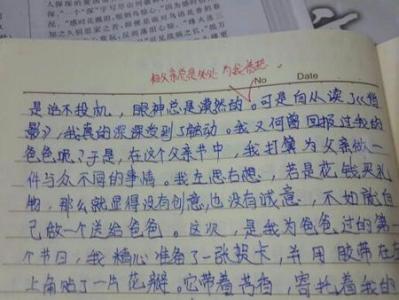 和父亲总是处处为我着想
No Date
是话不投机，眼神总是漠然的。可是自从读了《背
影》，我真的深深受到了触动。我又何曾回报过我的
爸爸呢？于是，在这个父亲节中，我打算为父亲做一
件与众不同的事情。我左思右想，若是花钱买礼
物，那么就显得没有创意，也没有诚意，不如就自
己做一个送给爸爸。这次，是我为爸爸过的第一
个节日，我精心准备了一张贺卡，并用胶带在左
上角贴了一片花瓣。它带着芳香，寄托着我的